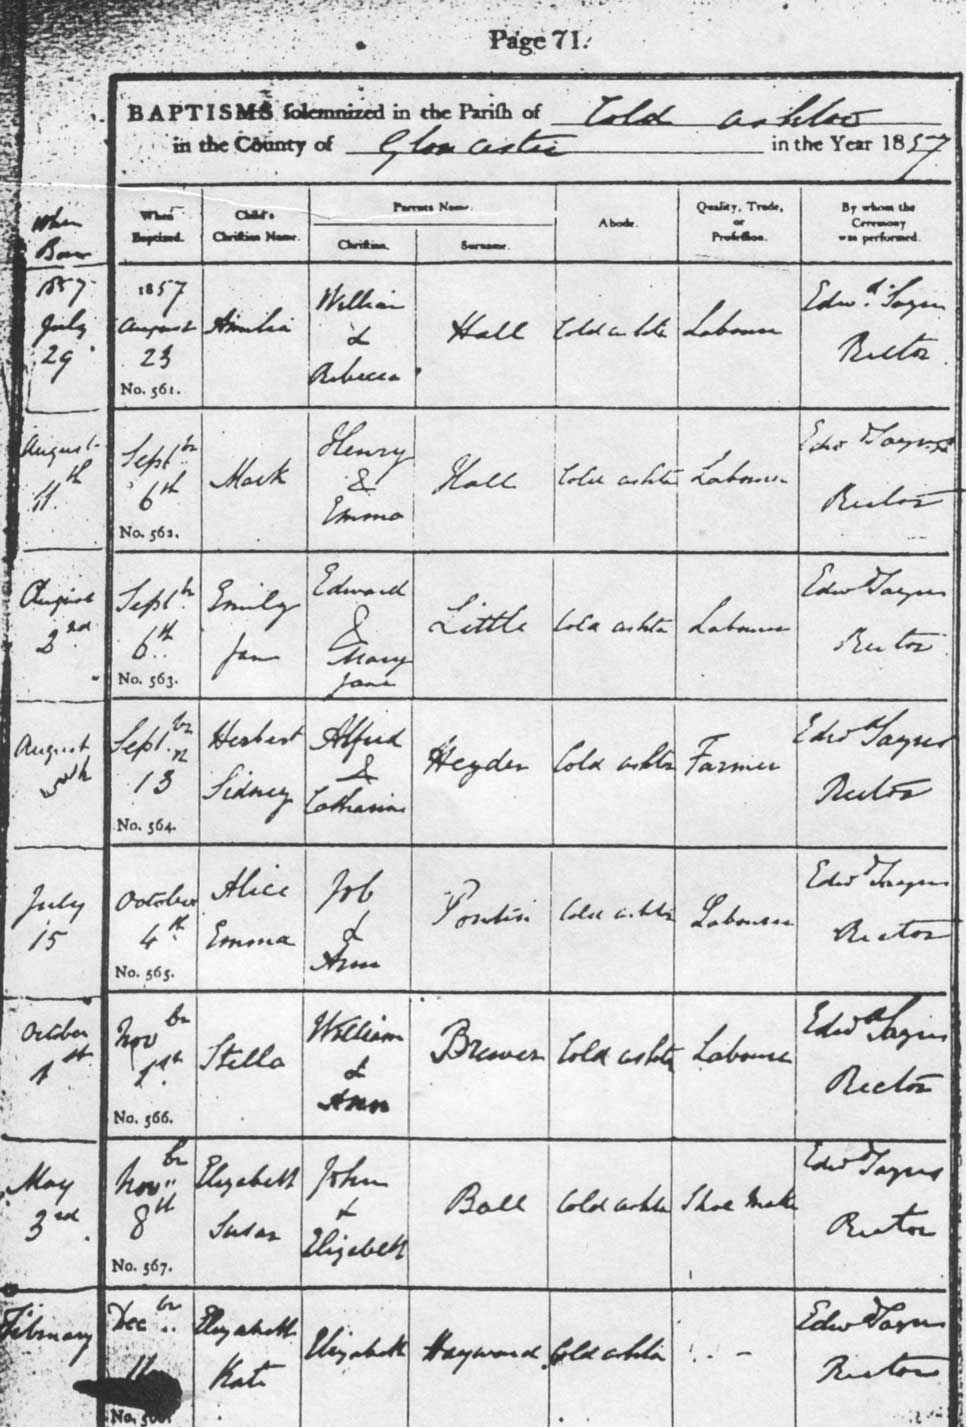 Page 71.
BAPTISMS solemnized in the Parish of Cold Ashton
in the County of Gloucester in the Year 1857
When Born
When Baptized.
Child's Christian Name.
Parents Name.
Christian.
Surname.
Abode.
Quality, Trade, or Profession.
By whom the Ceremony was performed.
1857 July 29
1857 August 23 No. 561.
Amelia
William & Rebecca
Hall
Cold Ashton
Labourer
Edwd. Sayres Rector
August 11th
Septbr 6th No. 562.
Mark
Henry & Emma
Hall
Cold Ashton
Labourer
Edwd Sayres Rector
August 2nd
Septbr 6th No. 563.
Emily Jane
Edward & Mary Jane
Little
Cold Ashton
Labourer
Edwd Sayres Rector
August 5th
Septbr 13 No. 564.
Herbert Sidney
Alfred & Catharine
Heyden
Cold Ashton
Farmer
Edwd Sayres Rector
July 15
October 4th No. 565.
Alice Emma
Job & Ann
Pontin
Cold Ashton
Labourer
Edwd Sayres Rector
October 1st
Novbr 1st No. 566.
Stella
William & Ann
Brewer
Cold Ashton
Labourer
Edwd Sayres Rector
May 3rd
Novbr 8th No. 567.
Elizabeth Susan
John & Elizabeth
Ball
Cold Ashton
Shoe Maker
Edwd Sayres Rector
February
Decbr No.
Elizabeth Kate
Elizabeth
Hayward
Cold Ashton
Edwd Sayres Rector